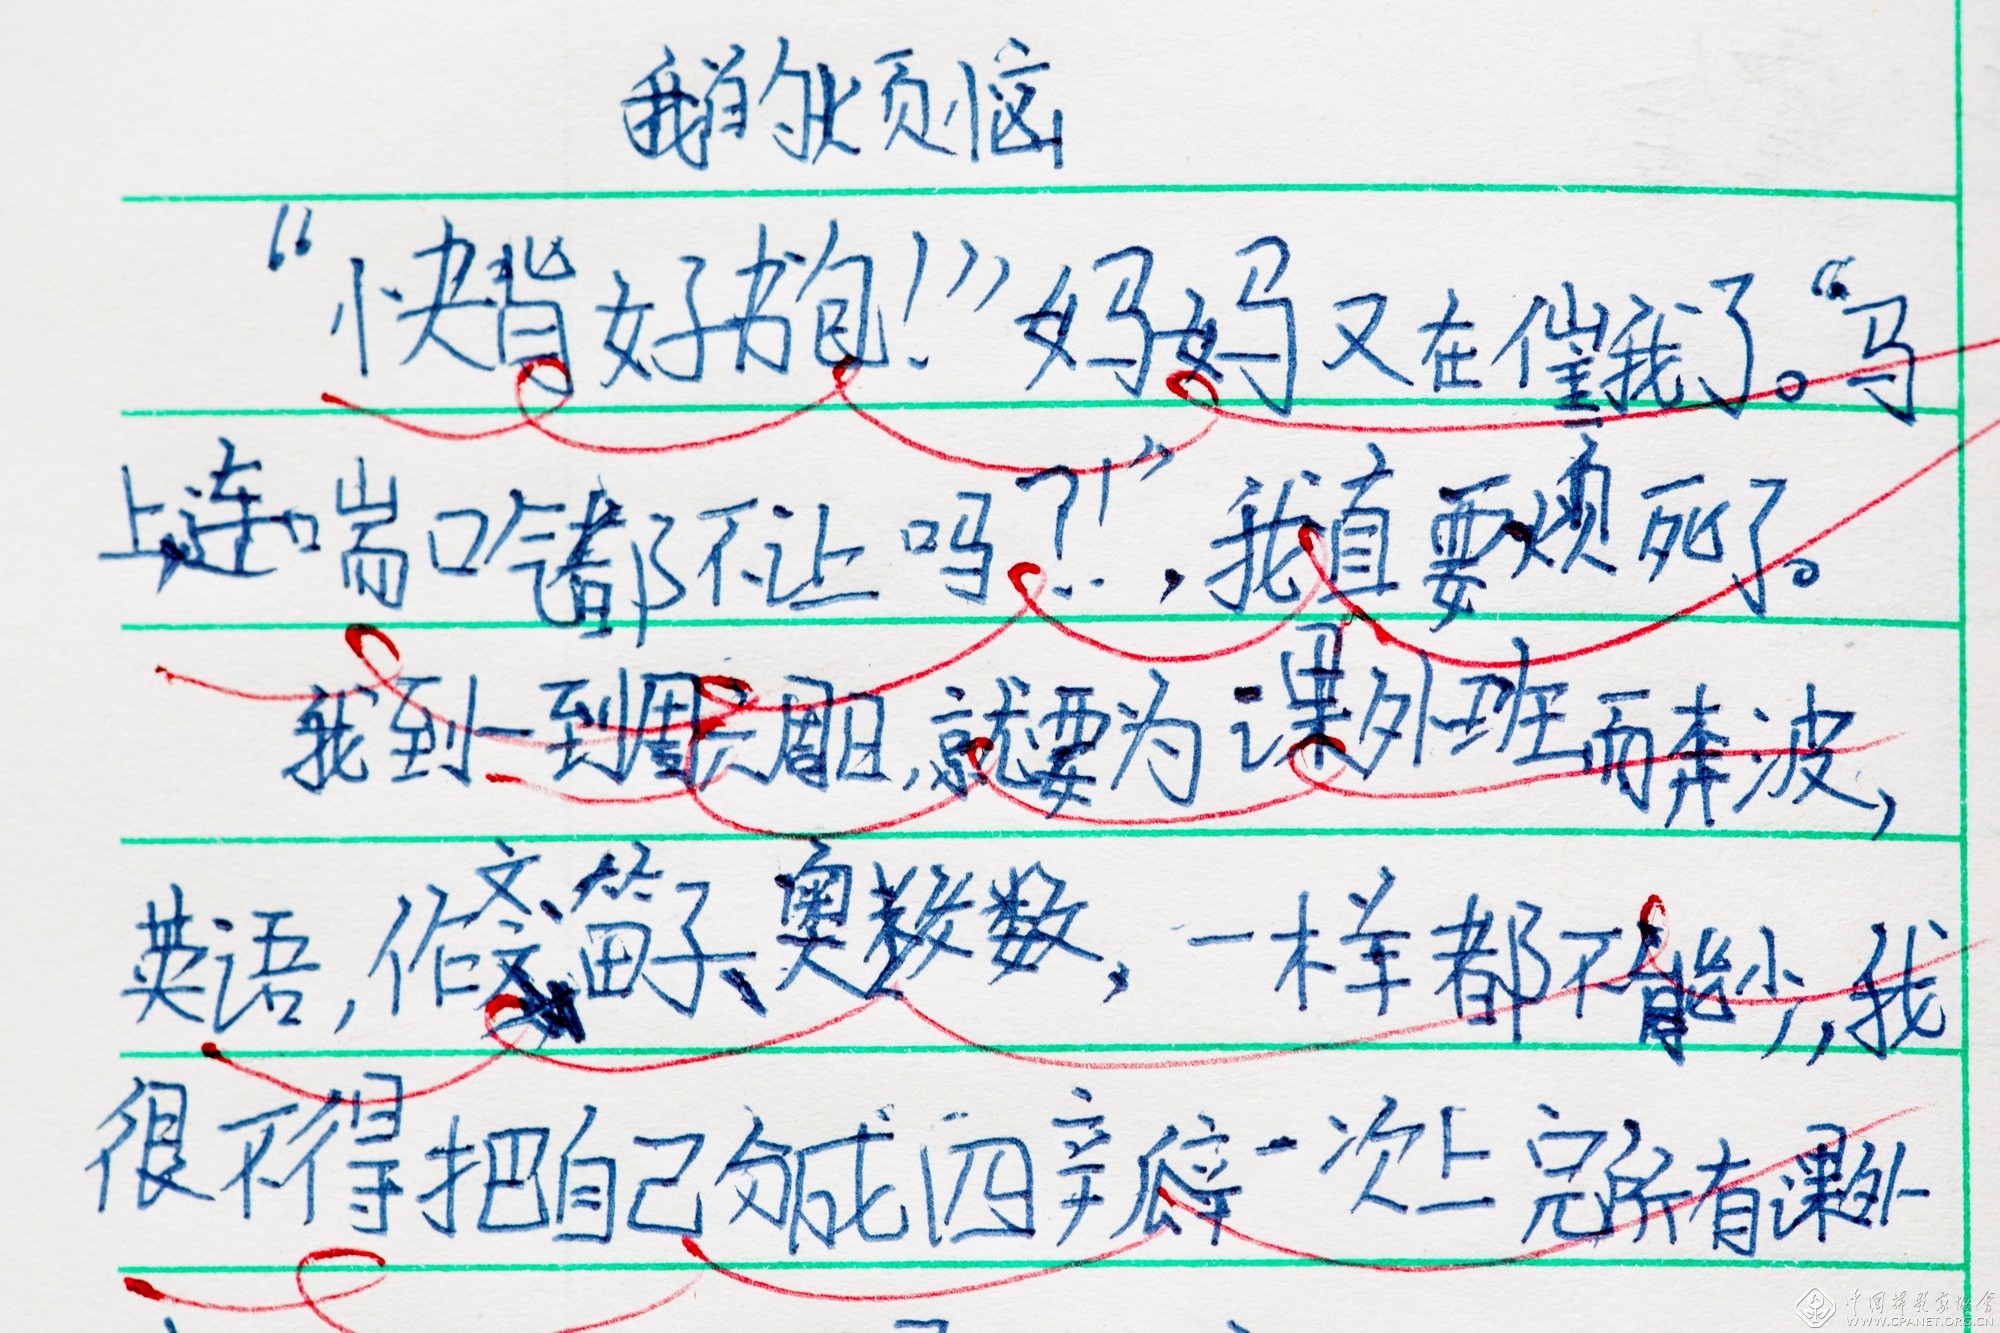 我的烦恼
“快背好书包!”妈妈又在催我了。“马
上,连喘口气都不让吗?!”,我直要烦死了。
我到一到周日,就要为课外班而奔波,
英语,作文、笛子、奥数,一样都不能少,我
很不得把自己分成四辛瓣一次上完所有课外
中国摄影家协会
WWW.CPANET.ORG.CN